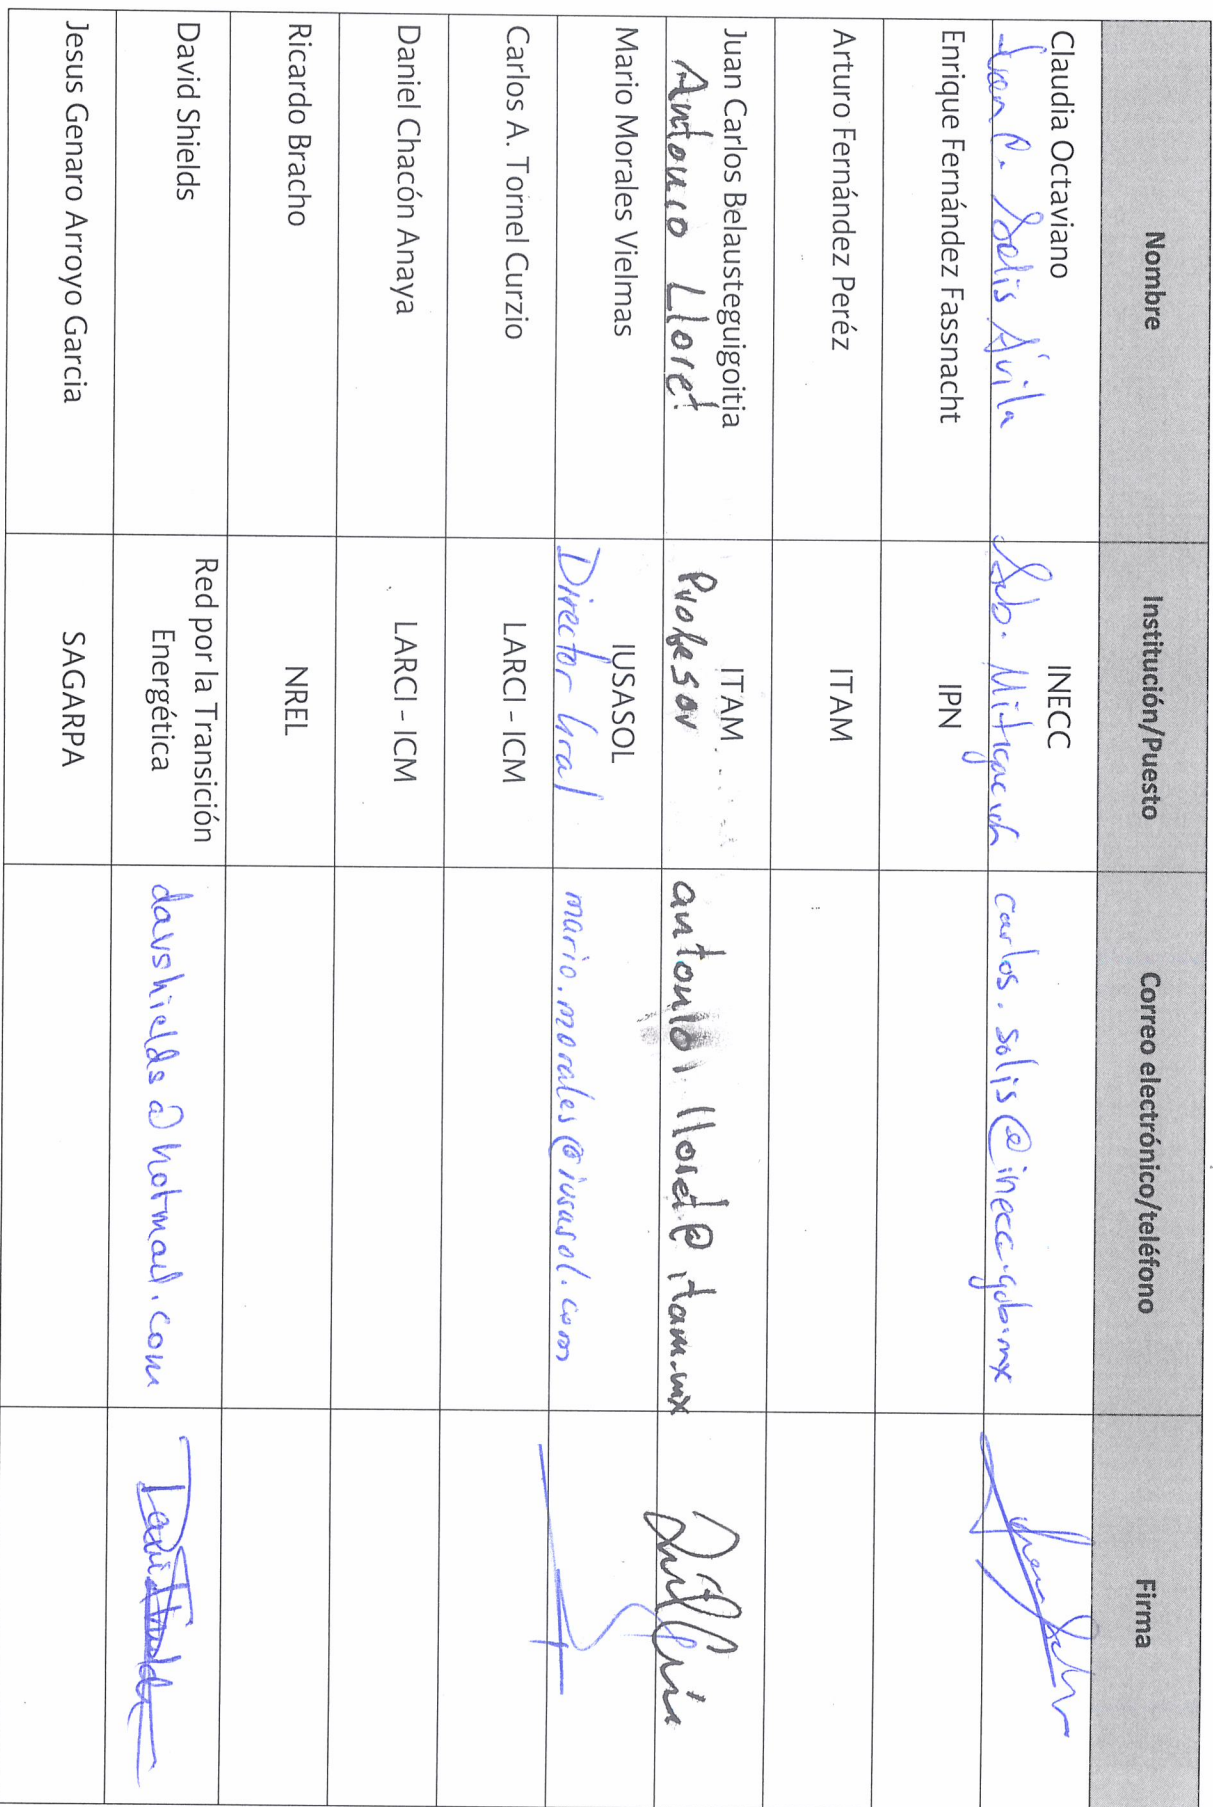 Nombre Institución/Puesto Correo electrónico/teléfono Firma
Claudia Octaviano INECC
Juan C. Solis Ávila Sub. Mitigación carlos.solis@inecc.gob.mx
Enrique Fernández Fassnacht IPN
Arturo Fernández Peréz ITAM
Juan Carlos Belausteguigoitia ITAM
Antonio Lloret Profesor antonio.lloret@itam.mx
Mario Morales Vielmas IUSASOL
Director Gral mario.morales@iusasol.com
Carlos A. Tornel Curzio LARCI - ICM
Daniel Chacón Anaya LARCI - ICM
Ricardo Bracho NREL
David Shields Red por la Transición
Energética davshields@hotmail.com David Shields
Jesus Genaro Arroyo Garcia SAGARPA